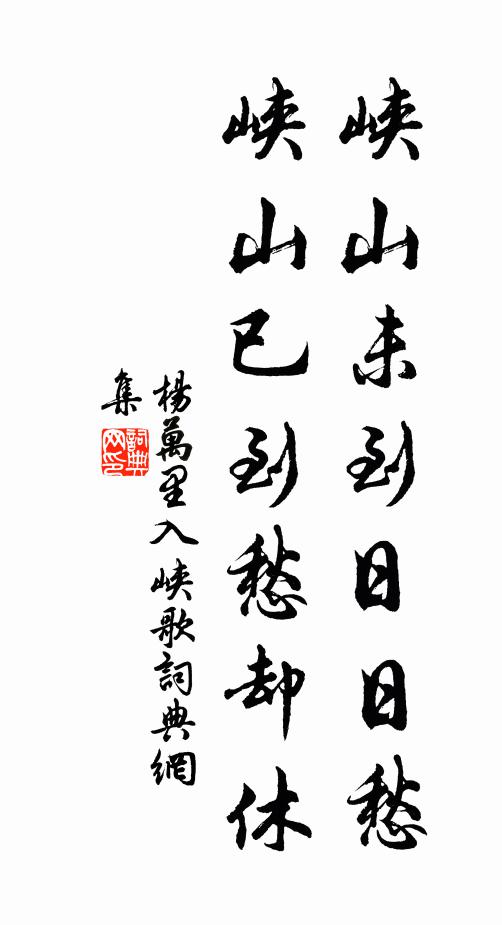 峽山未到日日愁
峽山已到愁却休
楊萬里入峽歌詞典網
集
詞典
网印